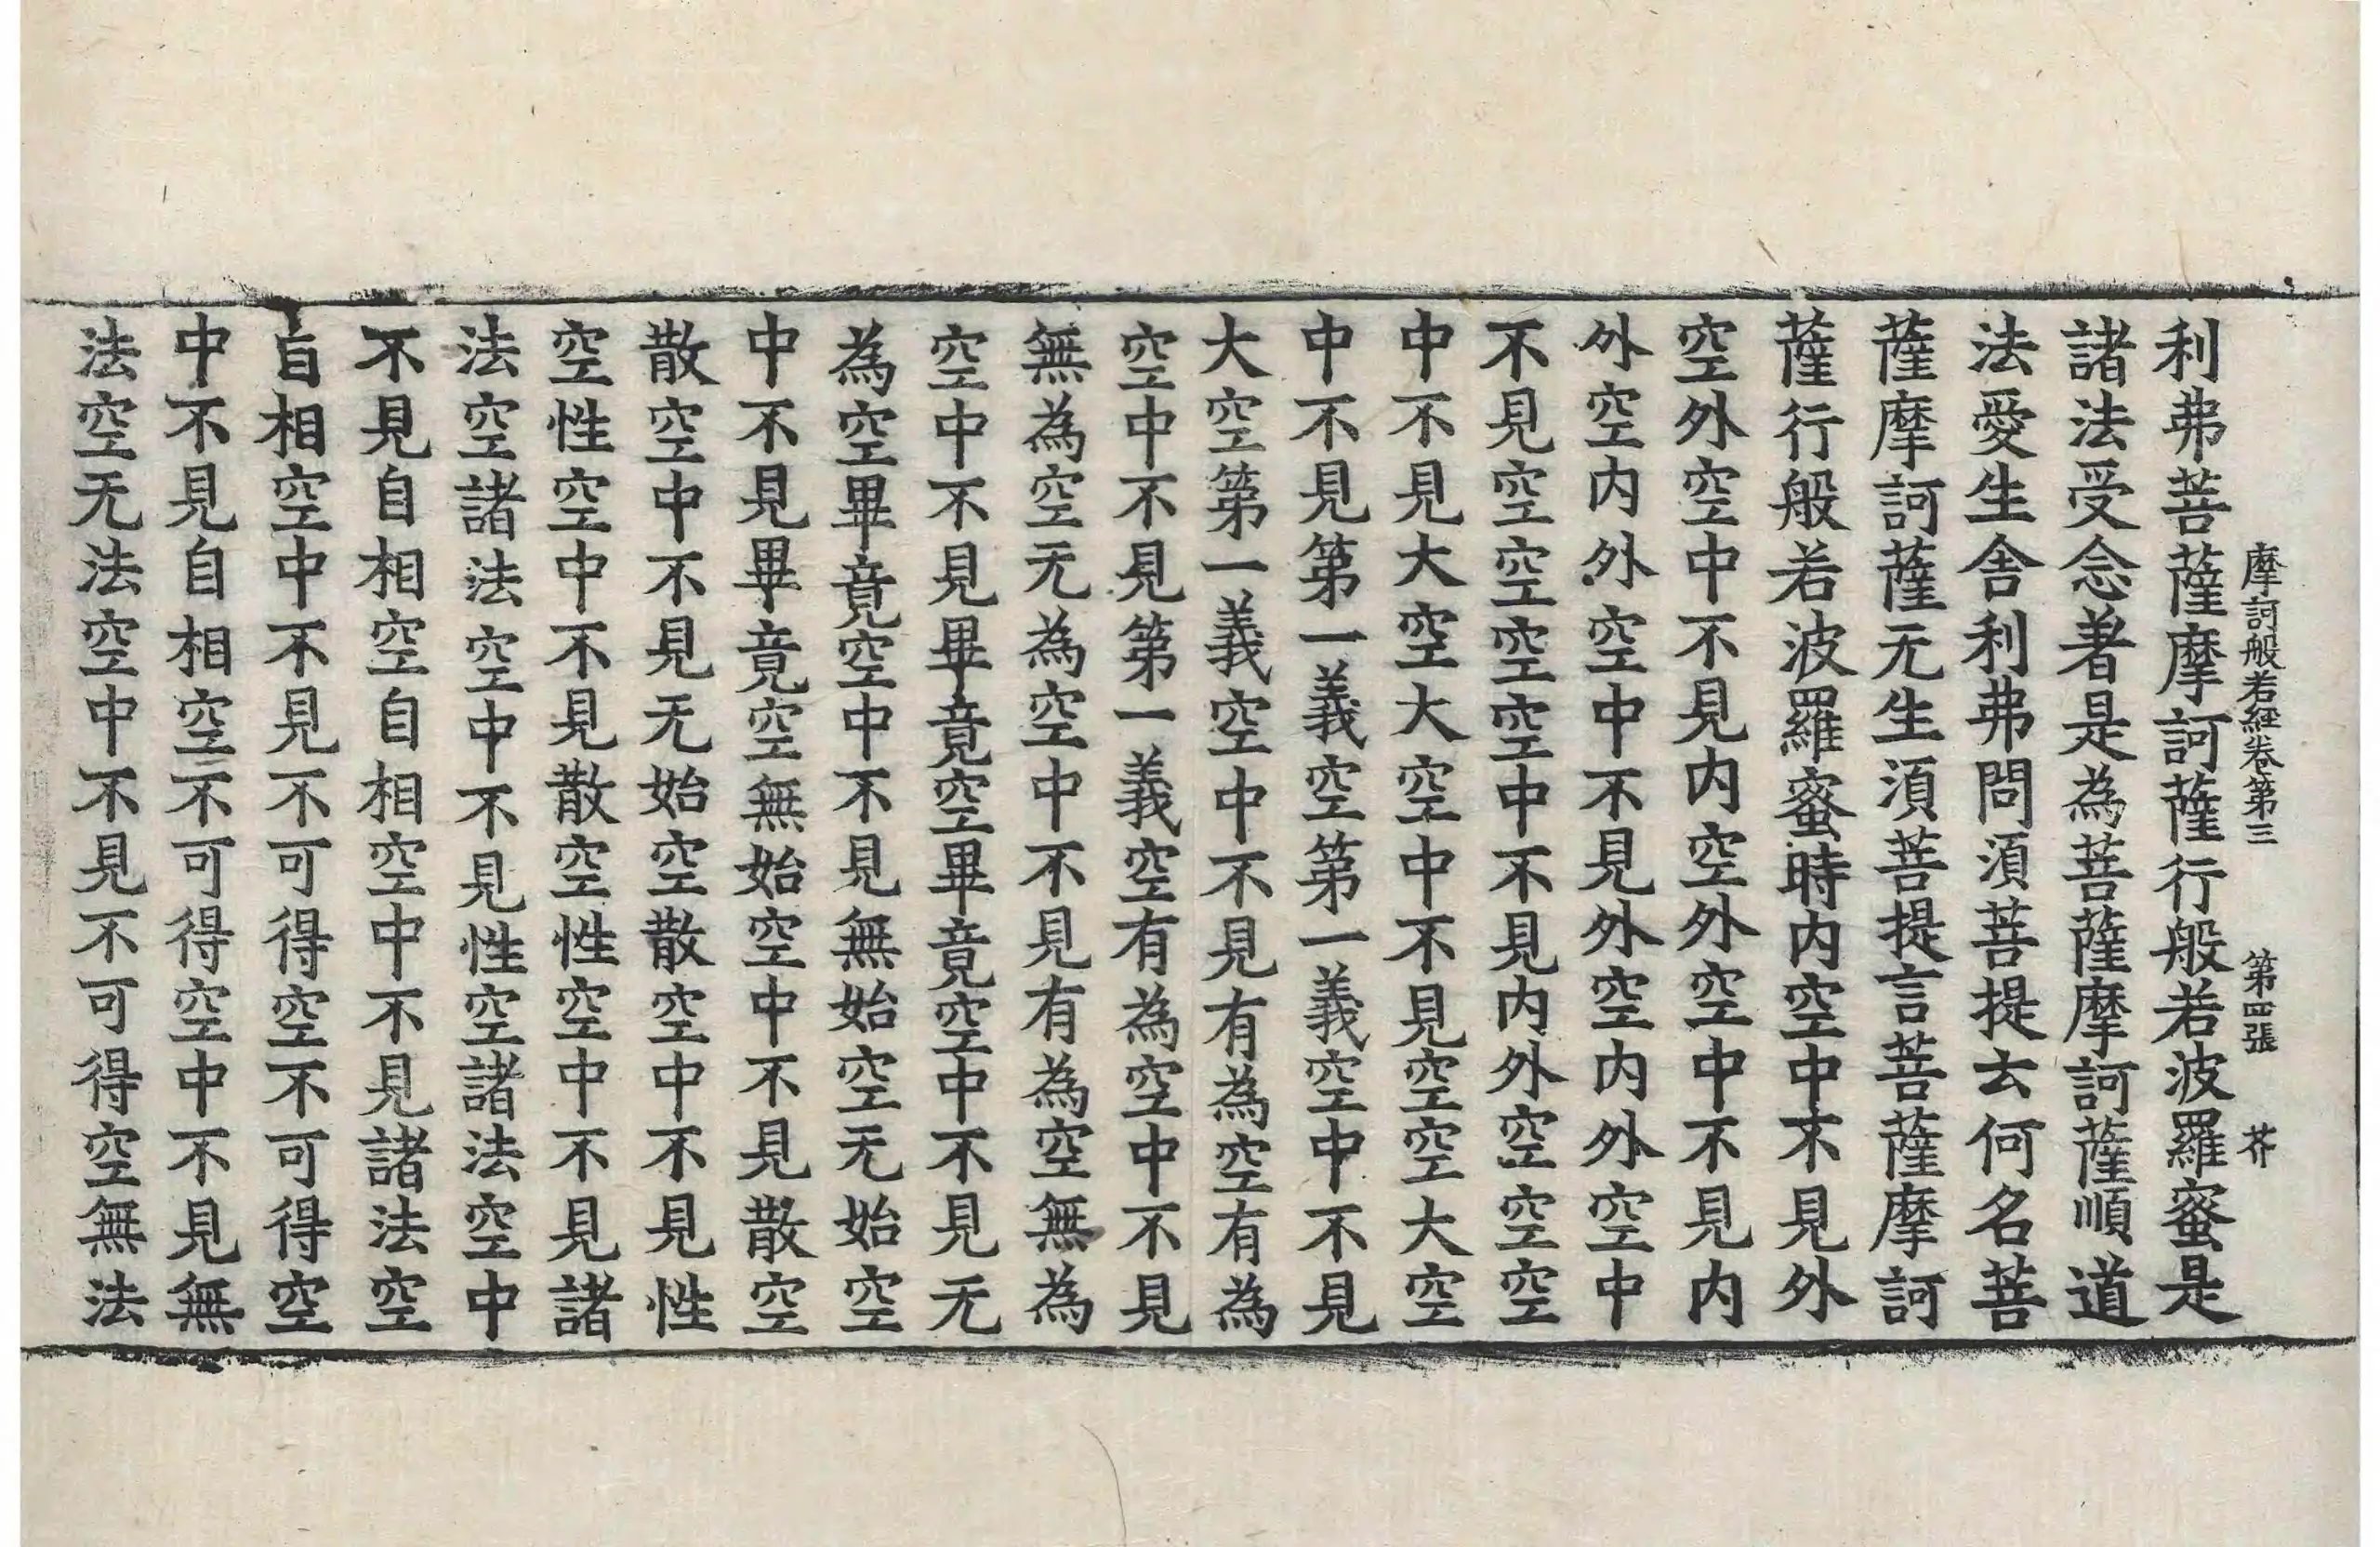 摩訶般若經卷第三　第四張　芥
利弗菩薩摩訶薩行般若波羅蜜是
諸法受念著是為菩薩摩訶薩順道
法愛生舍利弗問湏菩提云何名菩
薩摩訶薩无生湏菩提言菩薩摩訶
薩行般若波羅蜜時内空中不見外
空外空中不見内空外空中不見内
外空内外空中不見外空内外空中
不見空空空空中不見内外空空空
中不見大空大空中不見空空大空
中不見第一義空第一義空中不見
大空第一義空中不見有為空有為
空中不見第一義空有為空中不見
無為空无為空中不見有為空無為
空中不見畢竟空畢竟空中不見无
為空畢竟空中不見無始空无始空
中不見畢竟空無始空中不見散空
散空中不見无始空散空中不見性
空性空中不見散空性空中不見諸
法空諸法空中不見性空諸法空中
不見自相空自相空中不見諸法空
自相空中不見不可得空不可得空
中不見自相空不可得空中不見無
法空无法空中不見不可得空無法